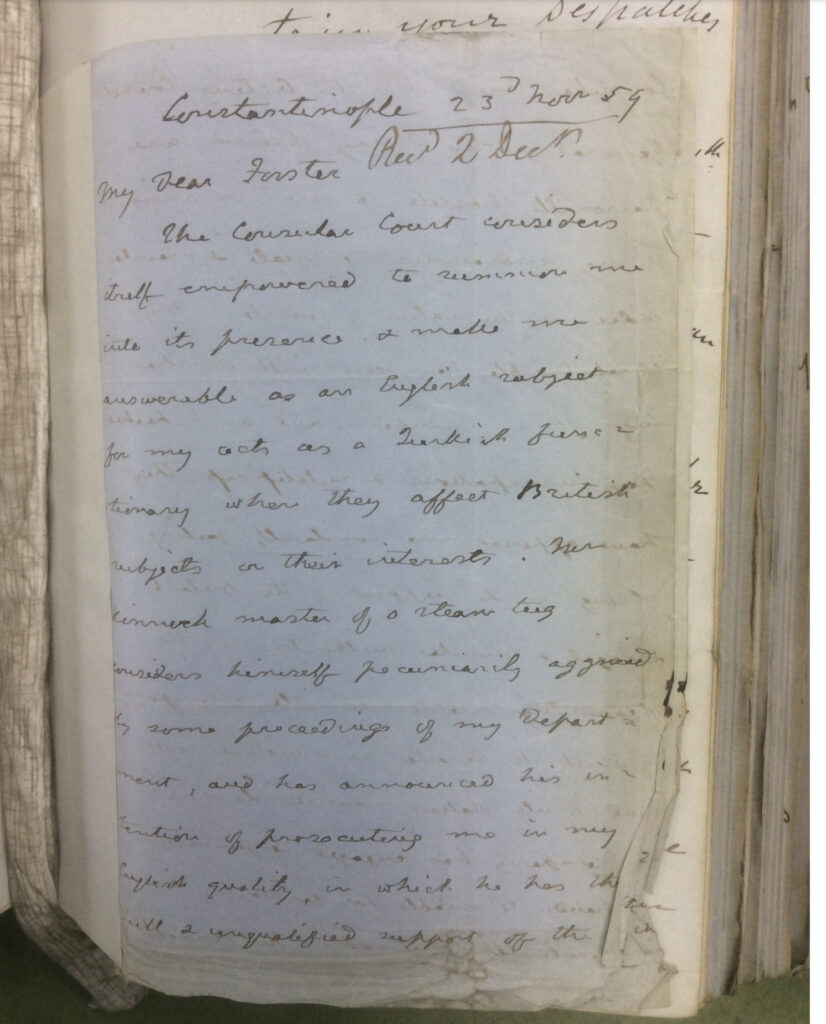 to in your Despatches
Constantinople 23d Novr 59
Recd 2 Decr.
My Dear Forster
The Consular Court considers
itself empowered to summon me
into its presence & make me
answerable as an English subject
for my acts as a Turkish func=
tionary when they affect British
subjects or their interests.
master of a steam tug
considers himself pecuniarily aggrieved
by some proceedings of my Depart=
ment, and has announced his in=
tention of prosecuting me in my
English quality in which he has the
full & unqualified support of the